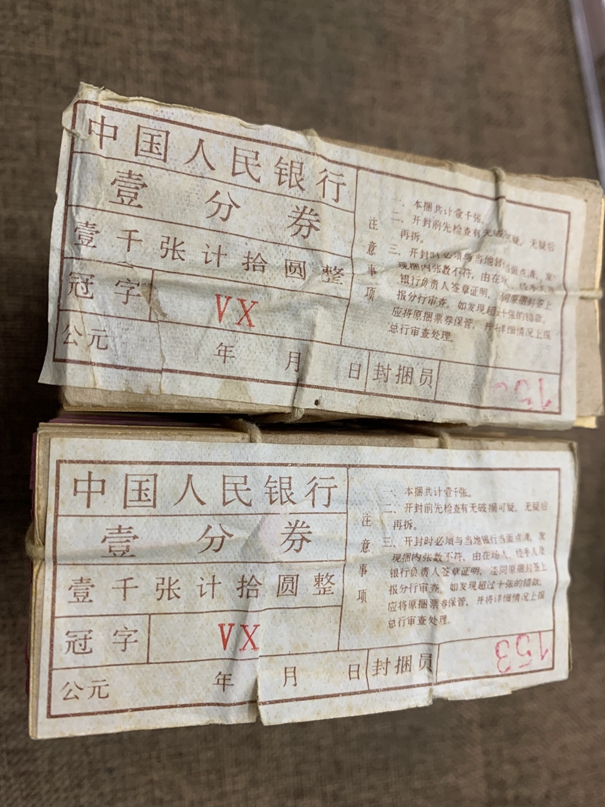 中国人民银行
壹分券
壹千张计拾圆整
冠字 VX
公元 年 月 日 封捆员
注意事项
一、本捆共计壹千张。
二、开封前先检查有无破损可疑，无疑后
再拆。
三、开封时必须与当地银行当面点清，发
现捆内张数不符，由在场
银行负责人签章证明，连同原捆封签上
报分行审查，如发现超过十张的错款，
应将原捆票券保管，并将详细情况上报
总行审查处理。
中国人民银行
壹分券
壹千张计拾圆整
冠字 VX
公元 年 月 日 封捆员
153
注意事项
一、本捆共计壹千张。
二、开封前先检查有无破损可疑，无疑后
再拆。
三、开封时必须与当地银行当面点清，发
现捆内张数不符，由在场点、经手人及
银行负责人签章证明，连同原捆封签上
报分行审查，如发现超过十张的错款，
应将原捆票券保管，并将详细情况上报
总行审查处理。